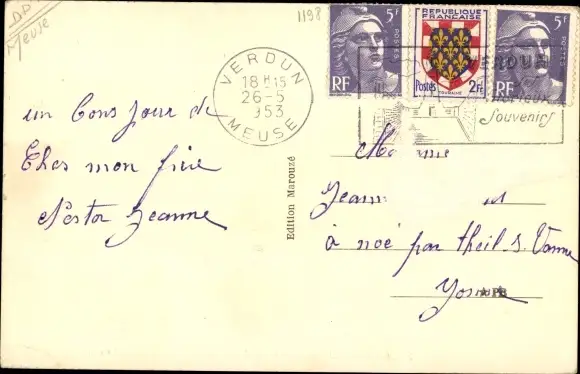 DP
Meuse
1198
5F
POSTES
RF
REPUBLIQUE FRANÇAISE
TOURAINE
Postes 2F
5F
POSTES
RF
VERDUN
18H15
26-5
1953
MEUSE
VERDUN
Souvenirs
un bons jour de
Ches mon frère
Nestor Jeanne
Edition Marouzé
Jeann
à noé par theil s. Vanne
Yonne